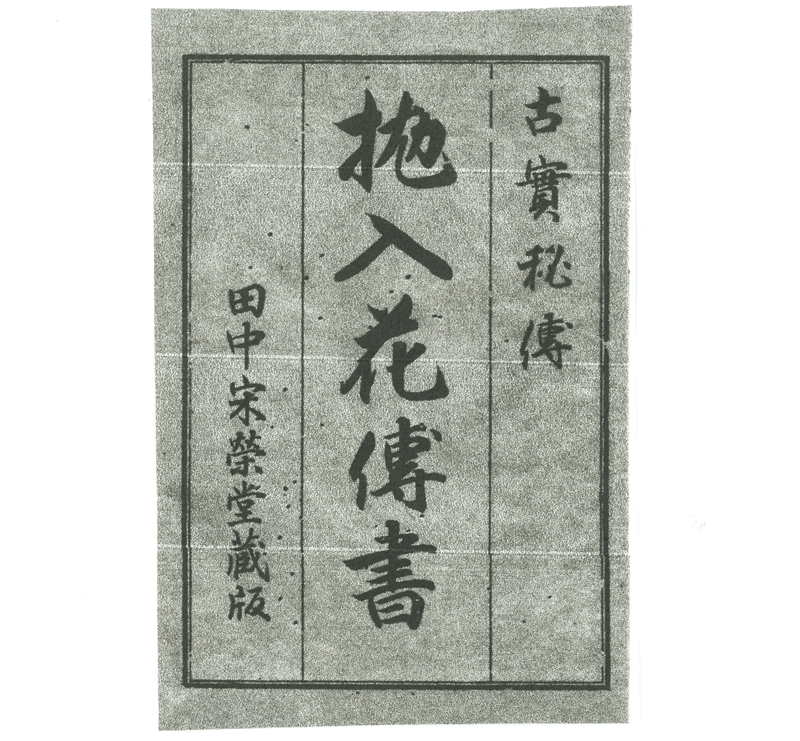 古實秘傳
抛入花傳書
田中宋榮堂蔵版